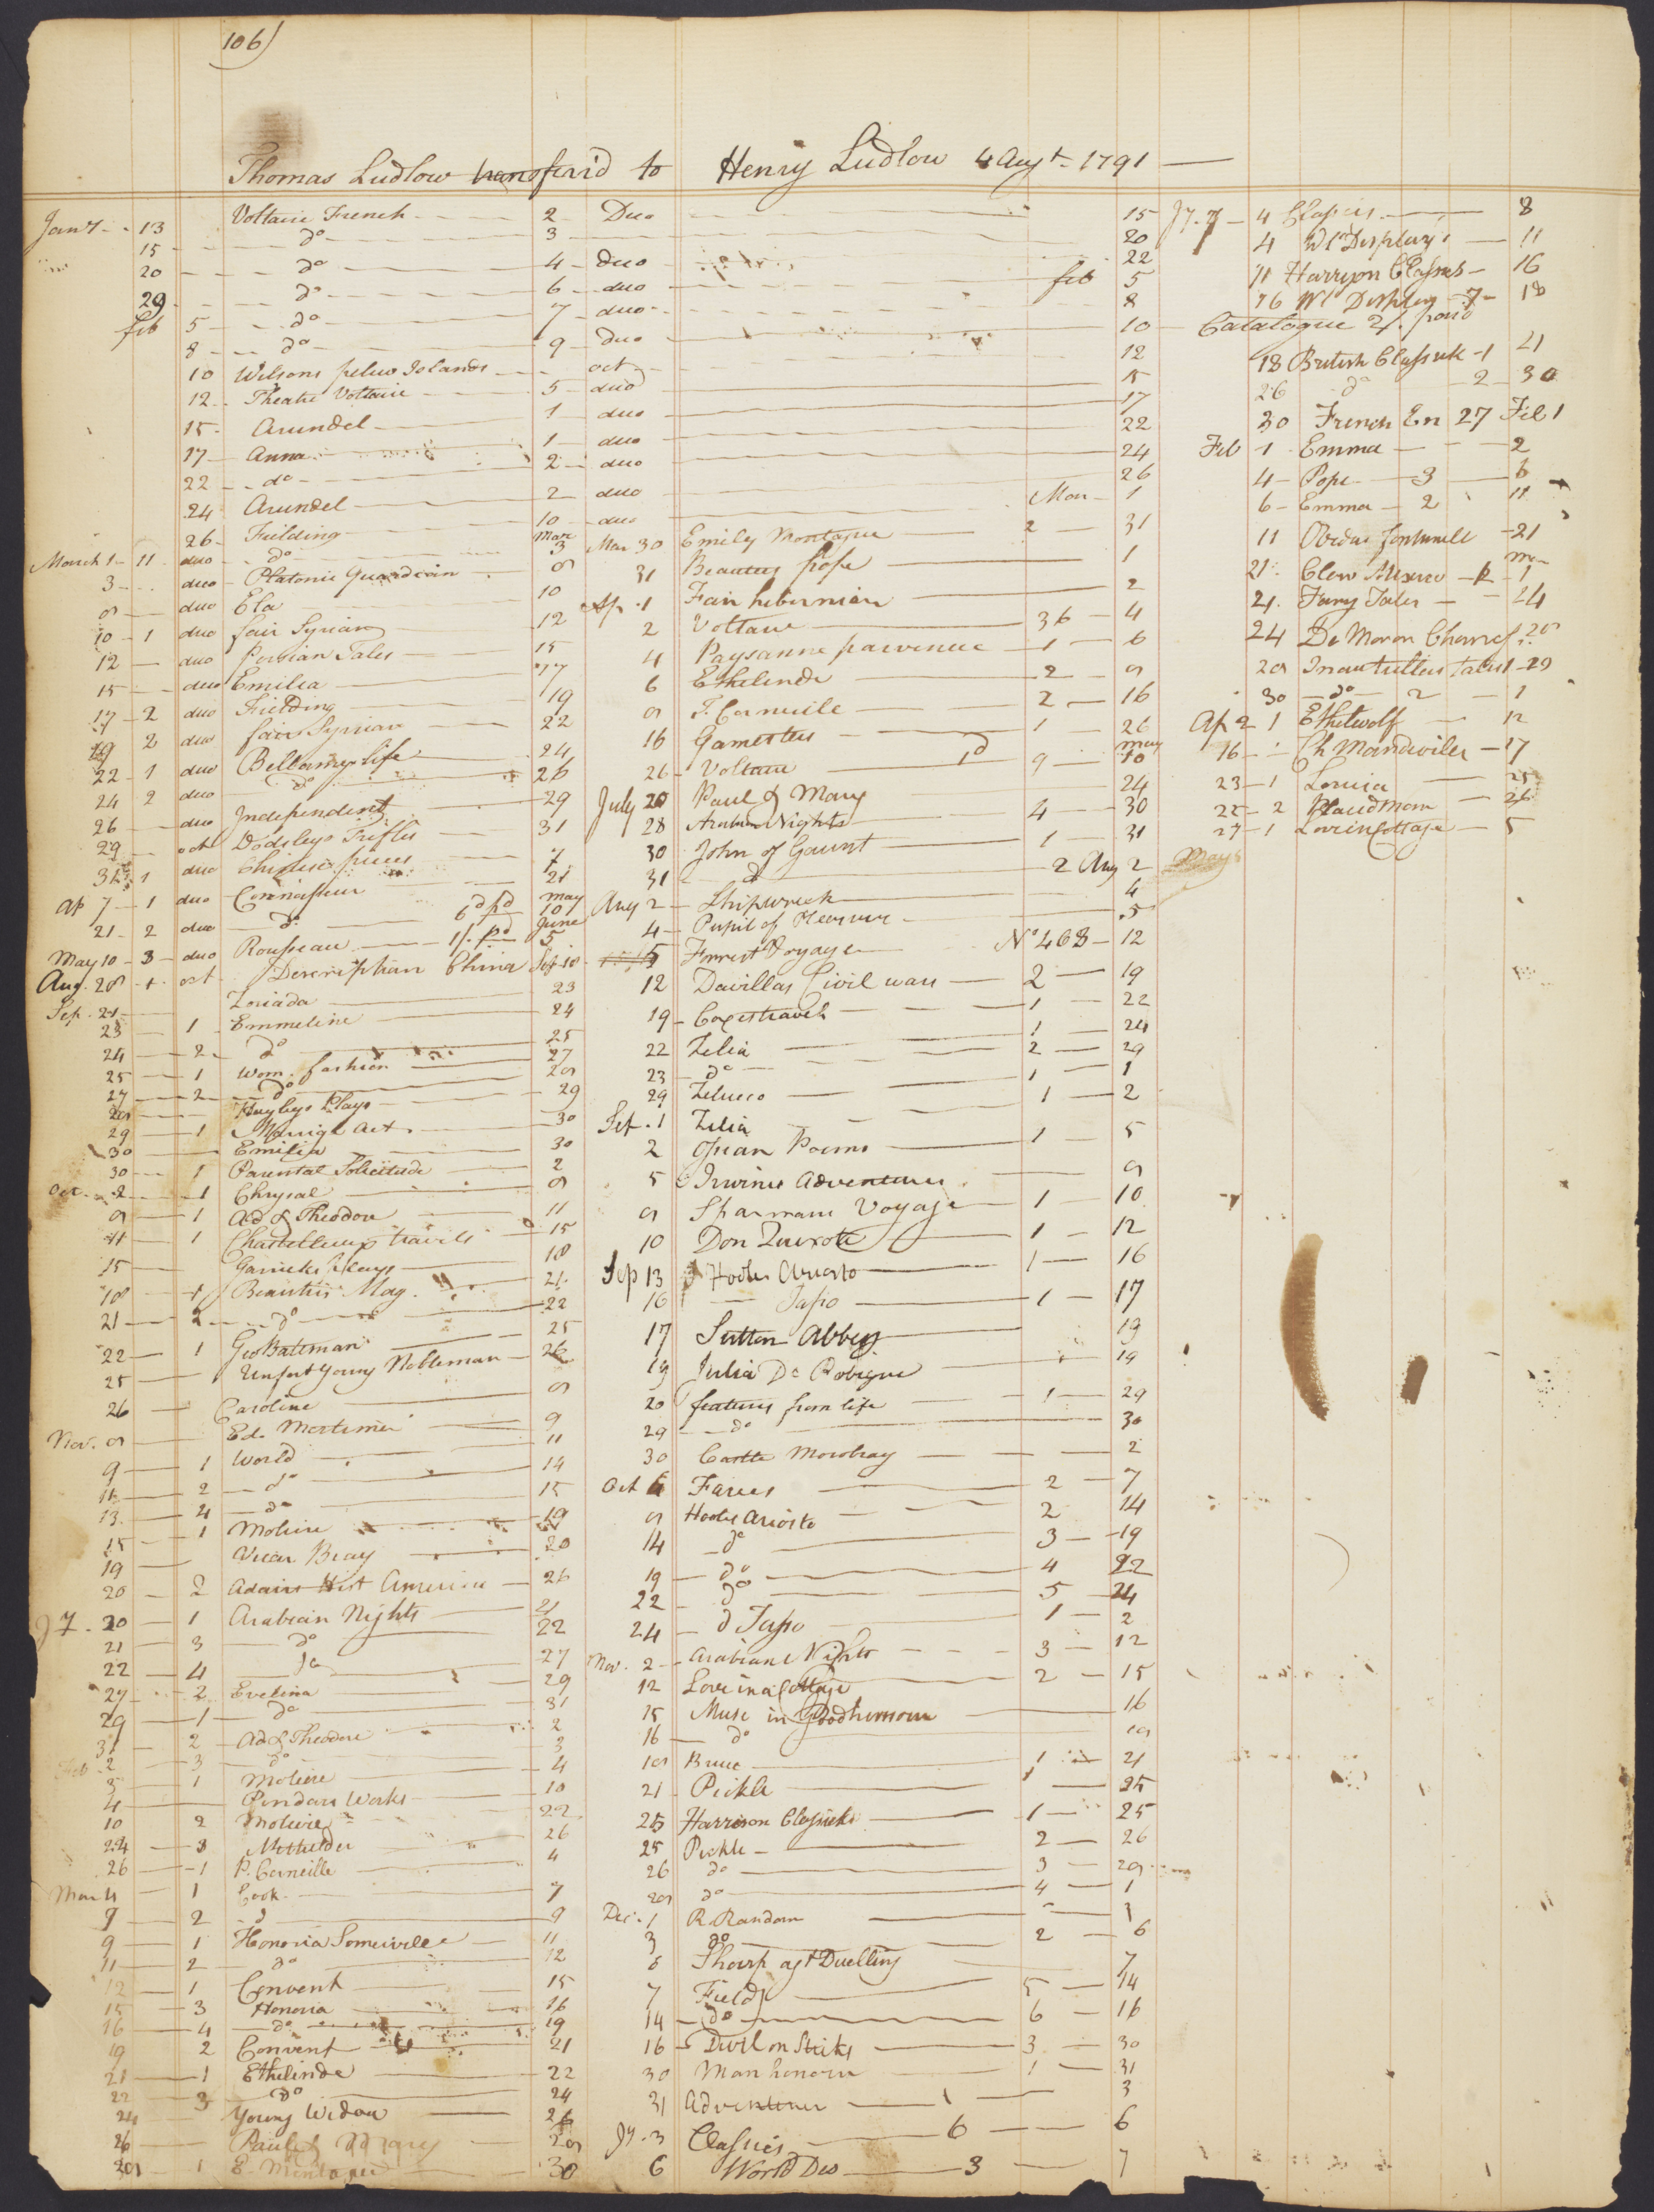 106)
Thomas Ludlow transferr'd to Henry Ludlow 4 Augt 1791
Jany 13 Voltaire French 2 Duo 15
15 do 3 20
20 do 4 duo 22
29 do 6 duo feb 5
feb 5 do 7 duo 8
8 do 9 duo 10
10 Wilsons pelew Islands oct 12
12 Theatre Voltaire 5 duo 15
15 Arundel 1 duo 17
17 Anna 1 duo 22
22 do 2 duo 24
24 Arundel 2 duo 26
26 Fielding 10 duo Mar 1
March 1 11 duo do Mar 3
3 duo Platonic Guardian 9
9 duo Ela 10
10 1 duo fair Syrian 12
12 duo Persian Tales 15
15 duo Emilia 17
17 2 duo Fielding 19
19 2 duo fair Syrian 22
22 1 duo Bellamys life 24
24 2 duo do 26
26 duo Independent 29
29 oct Dodsleys Trifles 31
31 1 duo Chinese pieces 7
Ap 7 1 duo Connoiseur 21
21 2 duo do 6d pd May 10
May 10 3 duo Rousseau 1/. pd June 5
Aug. 28 1 oct Description China Sep 10
Sep. 21 Zoriada 23
23 1 Emmeline 24
24 2 do 25
25 1 Wom. fashion 27
27 2 do 28
28 Hugleys Plays 29
29 1 Marriage Act 30
30 Emilia 30
30 1 Parental Solicitude 2
Oct. 2 1 Chrysal 9
9 1 Ad & Theodore 11
11 1 Chastelleuxs travels 15
15 Garricks Plays 18
18 1 Beauties Mag. 21
21 2 do 22
22 1 Geo Bateman 25
25 Unfort Young Nobleman 26
26 Caroline 9
Nov. 9 Ed. Mortimer 9
9 1 World 11
11 2 do 14
13 4 do 15
15 1 Moliere 19
19 Vicar Bray 20
20 2 Adairs Hist America 26
Jy. 20 1 Arabian Nights 21
21 3 do 22
22 4 do 27
27 2 Evelina 29
29 1 do 31
31 2 Ad & Theodore 2
Feb 2 3 do 3
3 1 Moliere 4
4 Pindars Works 10
10 2 Moliere 22
24 3 26
26 1 P. Corneille 4
Mar 4 1 Cook 7
7 2 d 9
9 1 Honoria Somerville 11
11 2 do 12
12 1 Convent 15
15 3 Honoria 16
16 4 do 19
19 2 Convent 21
21 1 Ethelinde 22
22 3 do 24
24 Young Widow 26
26 Paul & Mary 28
28 1 E. Montague 30
Mar 30 Emily Montague 2 31
31 Beauties pope 1
Ap. 1 Fair hibernian 2
2 Voltaire 36 4
4 Paysanne parvenue 1 6
6 Ethelinde 2 9
9 T. Corneille 2 16
16 Gamesters 1 26
26 Voltaire 9 May 10
July 20 Paul & Mary 24
28 Arabian Nights 4 30
30 John of Gaunt 1 31
31 d 2 Aug 2
Aug 2 Shipwreck 4
4 Pupil of Pleasure 5
5 Forrest Voyage No 468 12
12 Davillas Civil wars 2 19
19 Coxes travels 1 22
22 Zelia 1 24
23 do 2 29
29 Zeluco 1 1
Sep. 1 Zelia 1 2
2 Ossian Poems 1 5
5 Irwines Adventures 9
9 Sparmans Voyage 1 10
10 Don Quixote 1 12
Sep 13 Hooles Ariosto 1 16
16 Tasso 1 17
17 Sutton Abbey 19
19 Julia De Robigne 19
20 features from life 1 29
29 do 30
30 Castle Mowbray 2
Oct 6 Farces 2 7
9 Hooles Ariosto 2 14
14 do 3 19
19 do 4 22
22 do 5 24
24 d Tasso 1 2
Nov. 2 Arabian Nights 3 12
12 Love in a Cottage 2 15
15 Muse in Good humour 16
16 do 19
19 Bruce 1 21
21 Pickle 1 25
25 Harrison Classicks 1 25
25 Pickle 2 26
26 do 3 29
29 do 4 1
Dec. 1 R. Random 3
3 do 2 6
6 Sharp agt Duelling 7
7 Fieldg 5 14
14 do 6 16
16 Devil on Sticks 3 30
30 Man honour 1 31
31 Adventurer 1 3
Jy. 3 Classics 6 6
6 World Do 3 7
Jy. 7 4 Classics 8
4 Wls Display 11
11 Harrison Classicks 16
16 Wl Display 7 18
Catalogue 2/. paid
18 British Classick 1 21
26 do 2 30
30 French En 27 Feb 1
Feb 1 Emma 2
4 Pope 3 6
6 Emma 2 11
11 21
21 Mar 1
21 Fairy Tales 24
24 28
28 1 29
30 do 2 1
Ap 2 1 Ethelwolf 12
16 Ch Mandeviler 17
23 1 Louisa 25
25 2 26
27 1 Love in Cottage 5
May